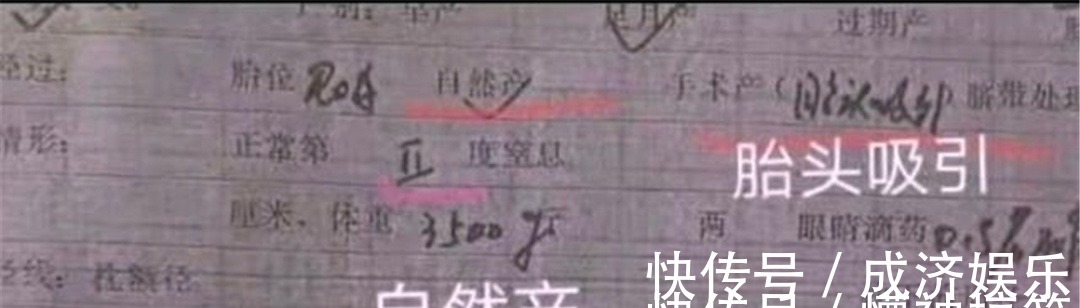 产别：早产 足月产 过期产
经过： 胎位 ROA 自然产 手术产（胎头吸引）脐带处理
情形： 正常第 II 度窒息
胎头吸引
厘米、体重 3500 gr 斤 两 眼睛滴药 0.5%
枕额径
快传号 / 成济娱乐
自然产